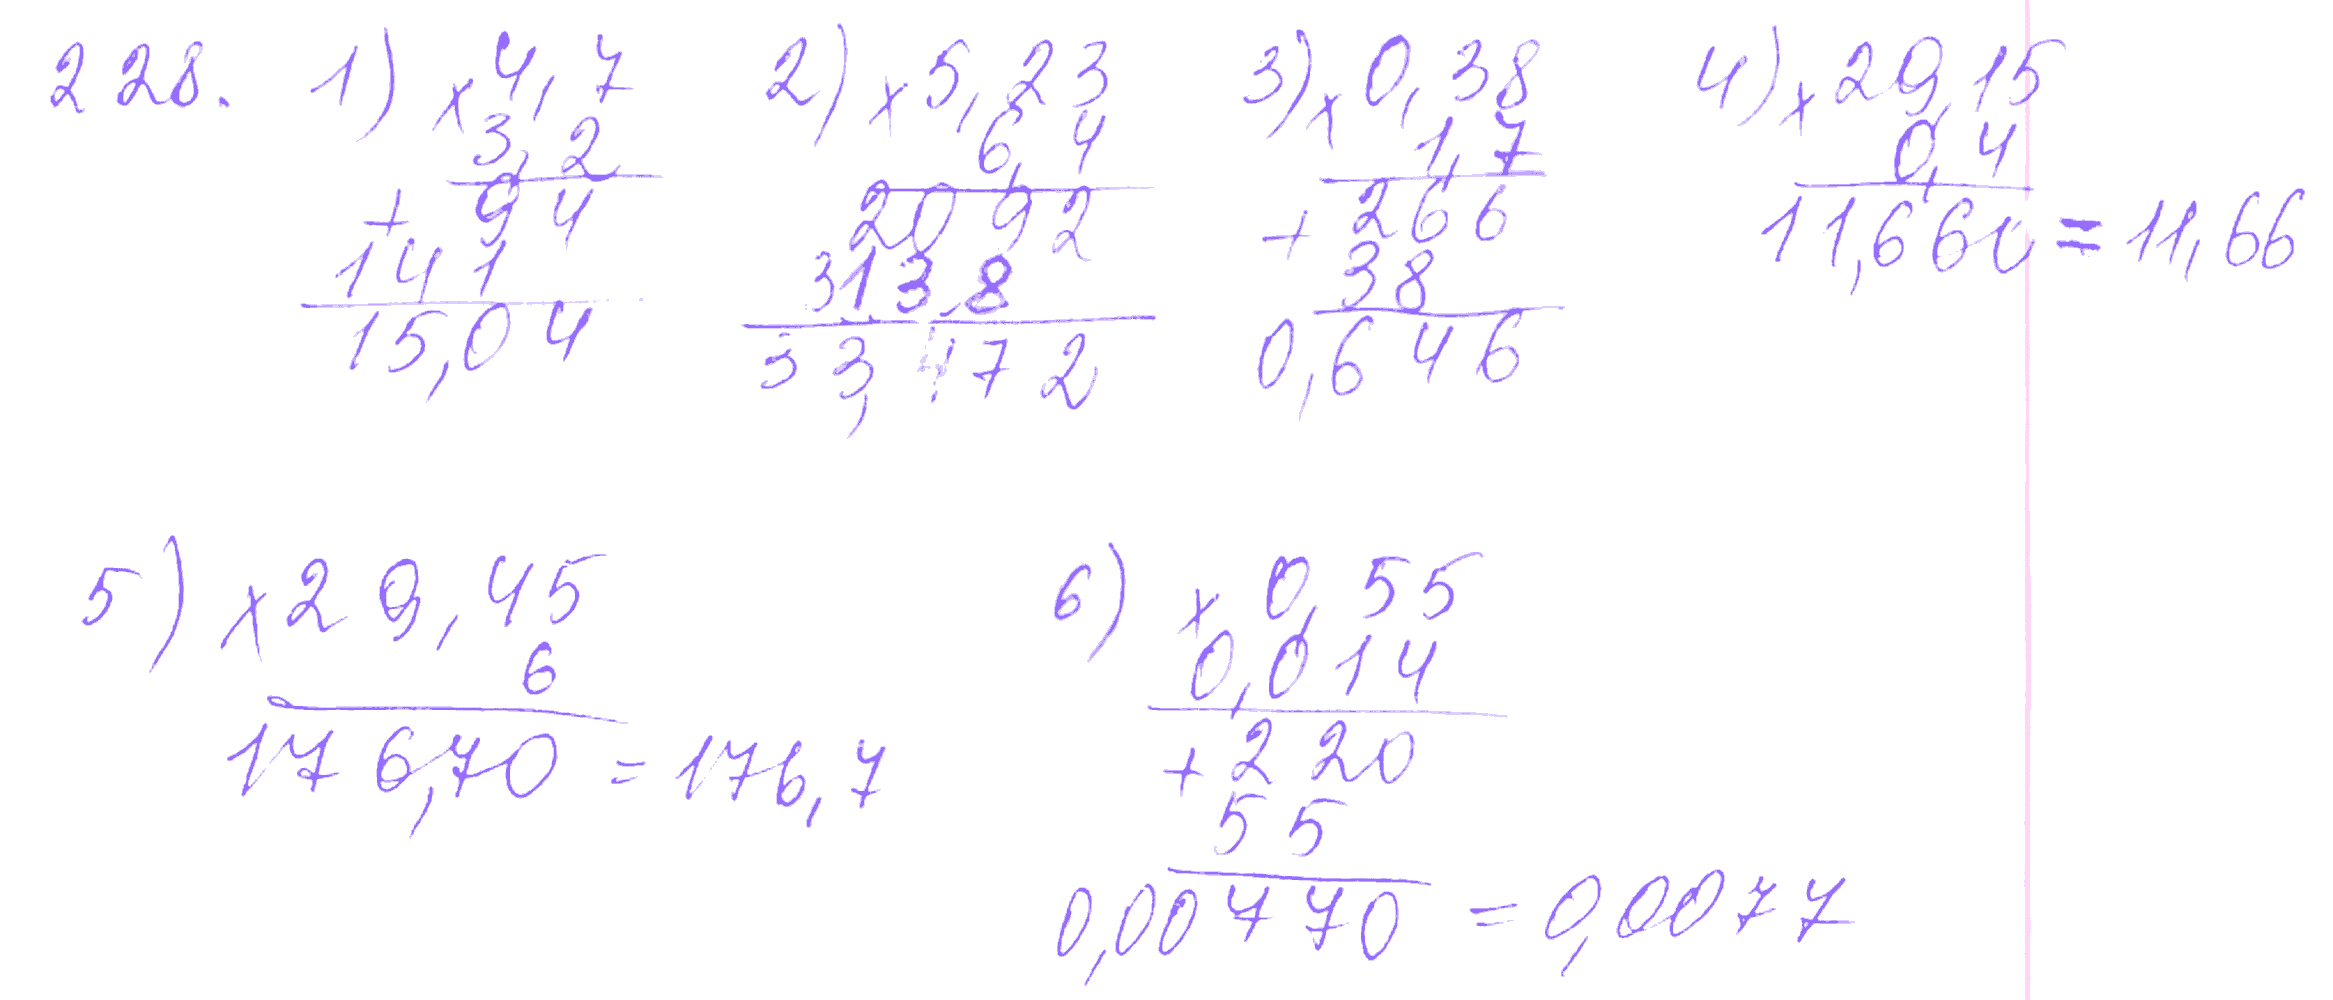 228. 1) × 4,7 2) × 5,23 3) × 0,38 4) × 29,15
3,2 6,4 1,7 0,4
+ 94 2092 + 266 11,660 = 11,66
141 3138 38
15,04 33,472 0,646
5) × 29,45 6) × 0,55
6 0,014
176,70 = 176,7 + 220
55
0,00770 = 0,0077